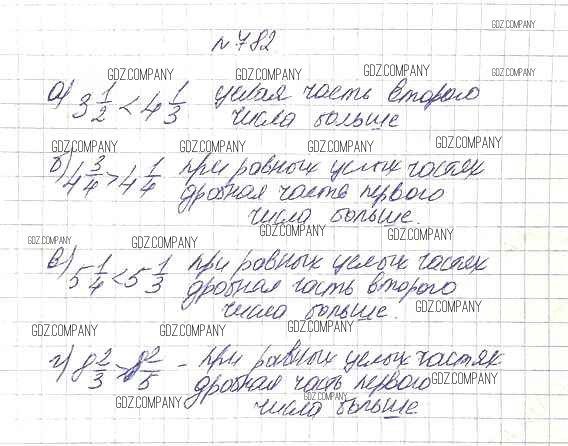 GDZ.COMPANY
№ 782
GDZ.COMPANY GDZ.COMPANY GDZ.COMPANY GDZ.COMPANY
а) 3 1/2 < 4 1/3 целая часть второго
числа больше
GDZ.COMPANY GDZ.COMPANY GDZ.COMPANY GDZ.COMPANY
б) 4 3/4 > 4 1/4 при равных целых частях
дробная часть первого
числа больше.
GDZ.COMPANY GDZ.COMPANY GDZ.COMPANY GDZ.COMPANY
в) 5 1/4 < 5 1/3 при равных целых частях
дробная часть второго
числа больше.
GDZ.COMPANY
GDZ.COMPANY GDZ.COMPANY GDZ.COMPANY
г) 8 2/3 > 8 2/5 - при равных целых частях
дробная часть первого
GDZ.COMPANY
числа больше
GDZ.COMPANY GDZ.COMPANY